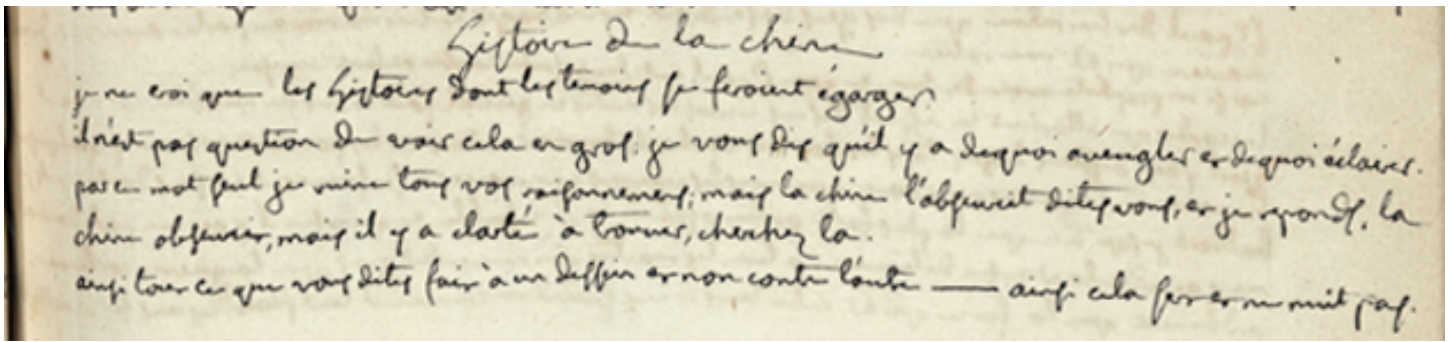 histoire de la chine
je ne croi que les histoires dont les temoins se feroient égorger.
il n'est pas question de voir cela en gros. je vous dis qu'il y a dequoi aveugler et dequoi éclairer.
par ce mot seul je ruine tous vos raisonnemens; mais la chine l'obscurcit dites vous, et je reponds, la
chine obscurcit, mais il y a clarté à trouver, cherchez la.
ainsi tout ce que vous dites fait à un dessein et non contre l'autre —— ainsi cela sert et ne nuit pas.